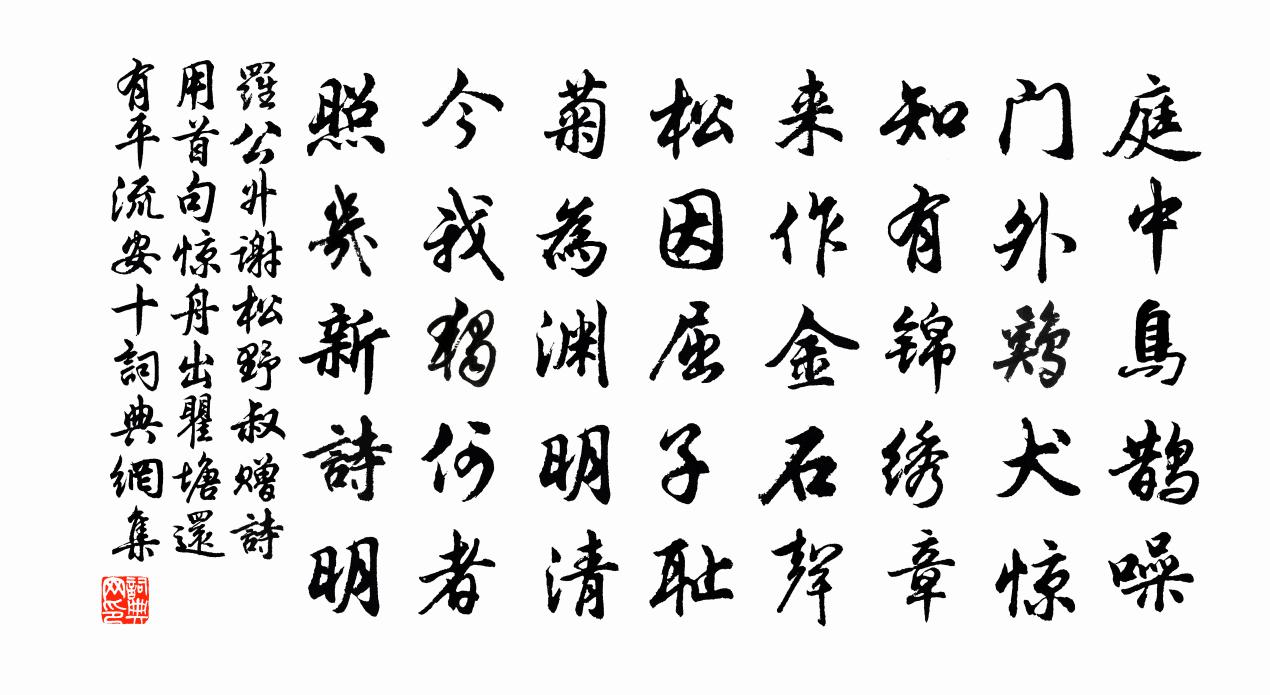 庭中鳥鹊噪
门外鷄犬惊
知有锦绣章
来作金石聲
松因屈子耻
菊為渊明清
今我獨何者
照幾新詩明
羅公升谢松野叔赠詩
用首句惊舟出瞿塘還
有平流安十詞典網集